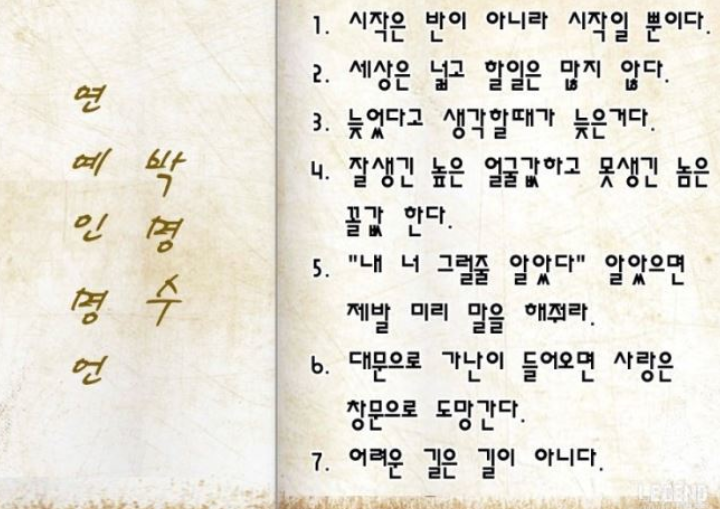 연예인 명언
박명수
1. 시작은 반이 아니라 시작일 뿐이다.
2. 세상은 넓고 할일은 많지 않다.
3. 늦었다고 생각할때가 늦은거다.
4. 잘생긴 높은 얼굴값하고 못생긴 놈은
꼴값 한다.
5. "내 너 그럴줄 알았다" 알았으면
제발 미리 말을 해줘라.
6. 대문으로 가난이 들어오면 사랑은
창문으로 도망간다.
7. 어려운 길은 길이 아니다.
LEGEND